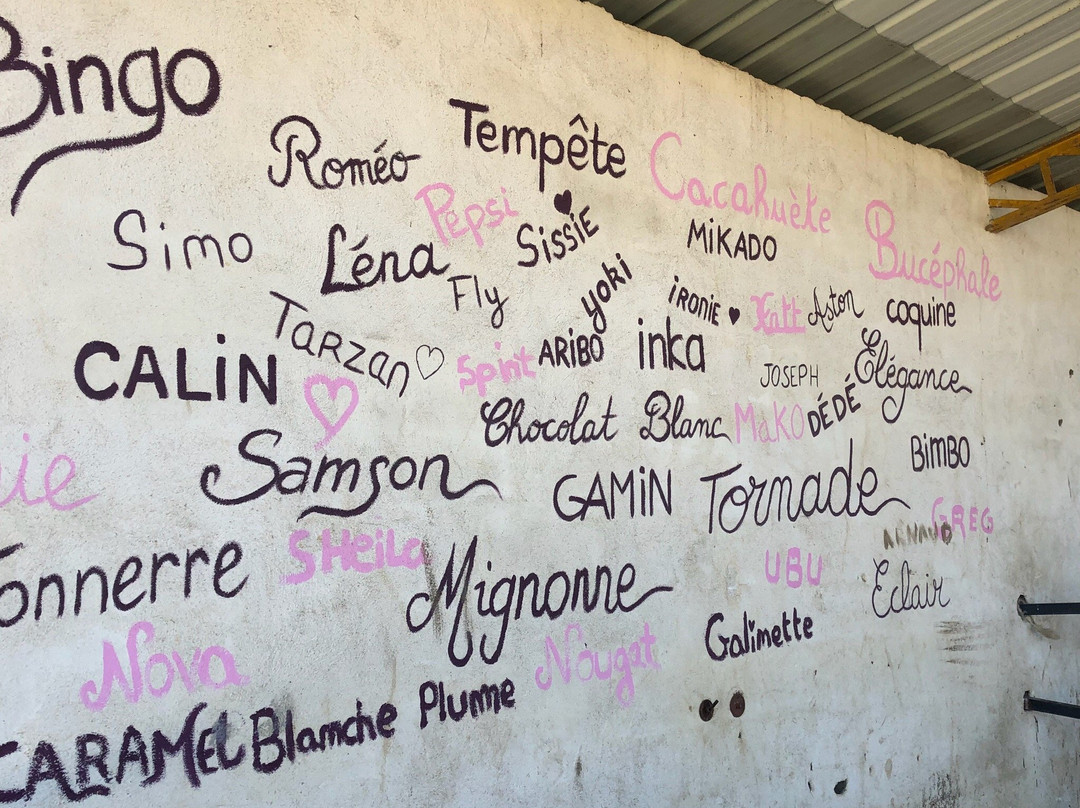 Bingo
Tempête
Roméo
Cacahuète
Pepsi
Sissie
Simo
Léna
MiKADO
Bucéphale
Fly
yoki
iRONiE
Aston
coquine
TaRZan
CALiN
Spirit
ARiBO
inka
JOSEPH
Élégance
Chocolat Blanc
MaKO
DÉDÉ
Samson
BiMBO
GAMiN
Tornade
GREG
ARNAUD
onnerre
SHeiLa
Mignonne
UBU
Eclair
Galinette
Nova
Nougat
Plume
CARAMEL
Blanche